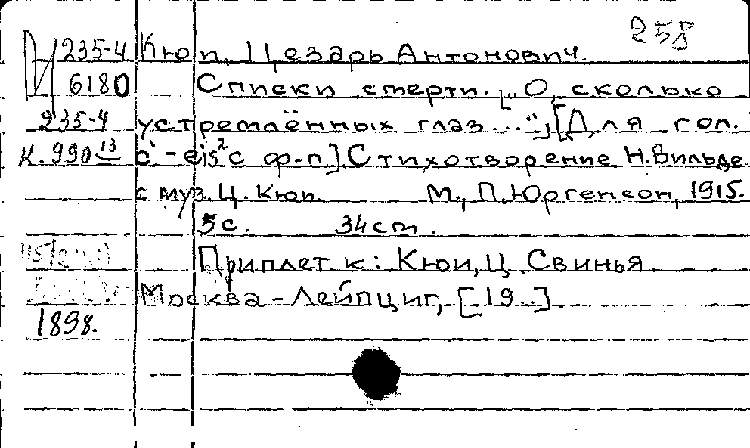 258
235-4 Кюи, Цезарь Антонович.
6180 Списки смерти. „О, сколько
235-4 устремлённых глаз...", [Для гол.
К.990-13 c' - eis² с ф-п.] Стихотворение Н. Вильде
с муз. Ц. Кюи. М., П. Юргенсон, 1915.
5 с. 34 см.
Приплет к: Кюи, Ц. Свинья
Москва - Лейпциг, [19..]
1898.